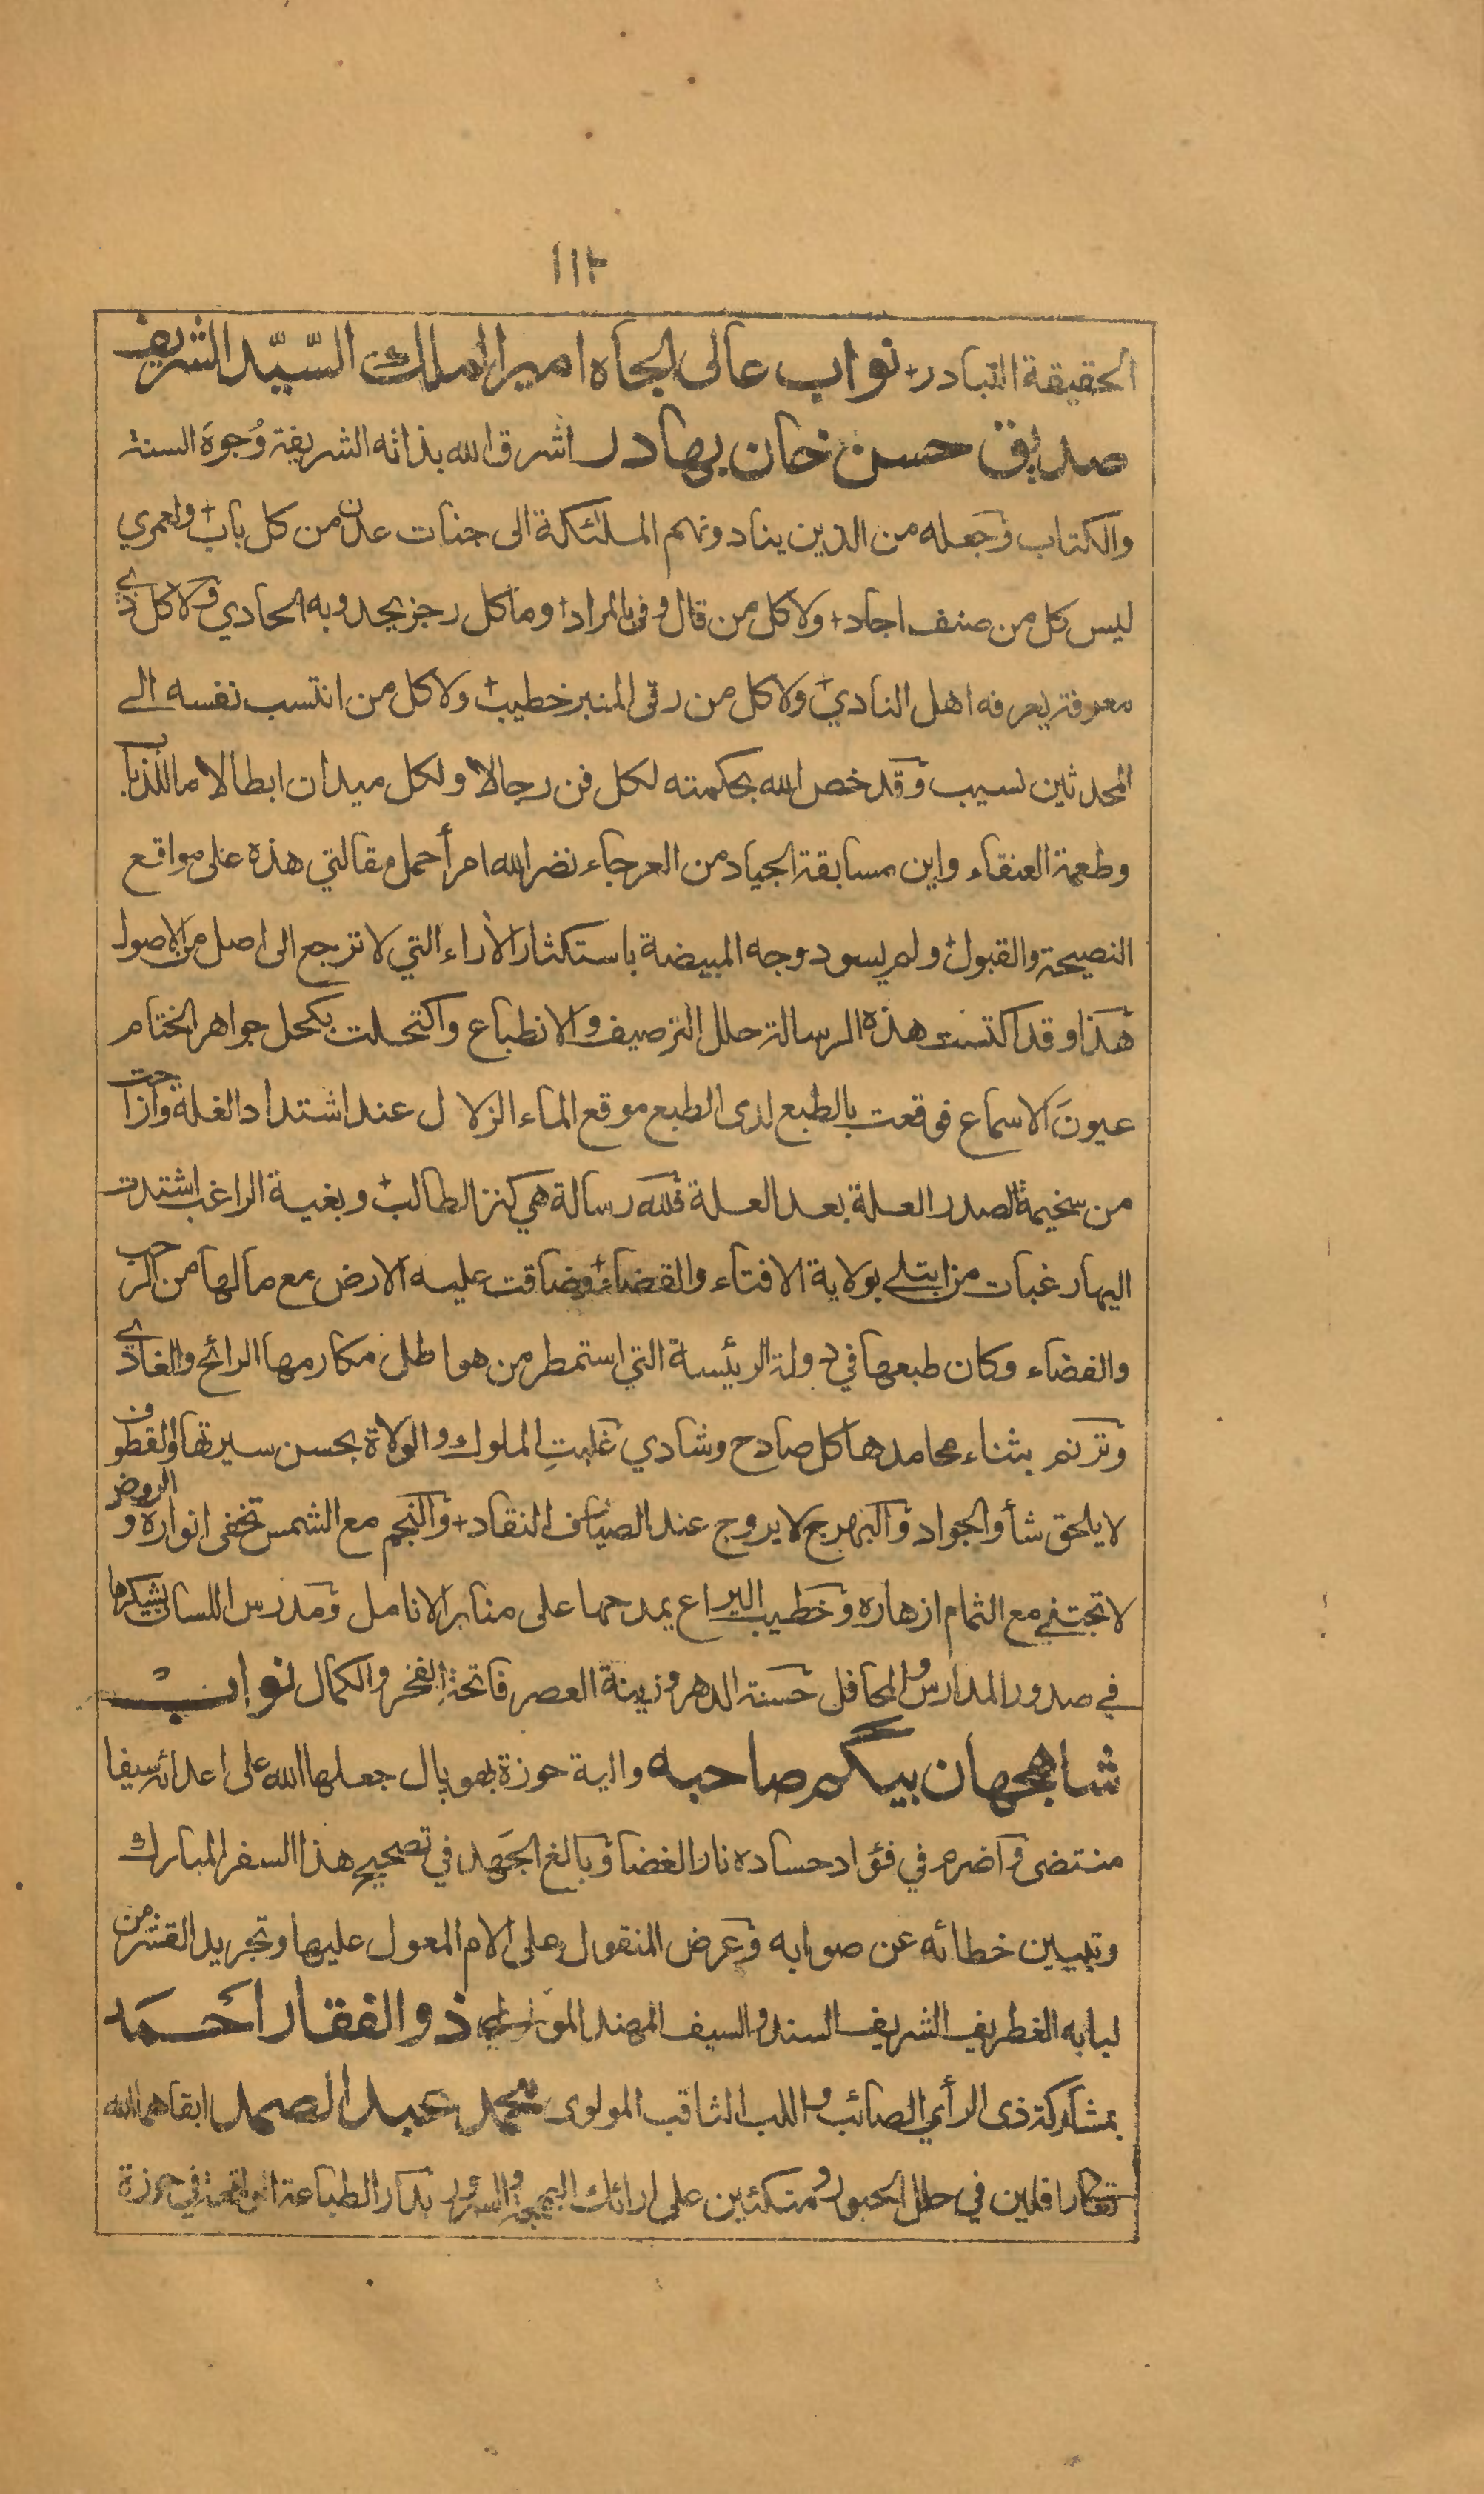 ١١٢
الحقيقة التبادر+ نواب عالی الجاه امیر الملك السّیّد الشریف
صدیق حسن خان بهادر اشرق الله بذاته الشريفة وُجوهَ السنة
والكتاب وجعله من الذين ينادونهم الملئكة الى جنات عدن من كل باب+ ولعمري
ليس كل من صنف اجاد+ ولا كل من قال وفى بالمراد+ وما كل رجز يحدو به الحادي ولا كل ذي
معرفة يعرفه اهل النادي+ ولا كل من رقى المنبر خطيب+ ولا كل من انتسب نفسه الے
المحدثين نسيب وقد خص الله بحكمته لكل فن رجالا ولكل ميدان ابطالا ما للذباب
وطعمة العنقاء واين مسابقة الجياد من العرجاء نضر الله امرأ حمل مقالتي هذه على مواقع
النصيحة والقبول+ ولم يسود وجه المبيضة باستكثار الأراء التي لا ترجع الى اصل من الاصول
هذا وقد اكتست هذه الرسالة حلل الترصيف والانطباع واكتحلت بكحل جواهر الختام
عيونَ الاسماع فوقعت بالطبع لدى الطبع موقع الماء الزلال عند اشتداد الغلة وازاحت
من سخيمة الصدر العلة بعد العلة فلله رسالة هي كنز الطالب+ وبغية الراغب اشتدت
اليها رغبات من ابتلے بولاية الافتاء والقضاء+ وضاقت عليه الارض مع مالها من الرحب
والفضاء وكان طبعها في دولة الرئيسة التي استمطر من هواطل مكارمها الرائح والغادي
وترنم بثناء محامدها كل صادح وشادي غلبتِ الملوك والولاة بحسن سيرتها والقطوف
لا يلحق شأو الجواد والبهرج لا يروج عند الصياف النقاد+ والنجم مع الشمس تخفى انواره والروض
لا تجتنے مع الثمام ازهاره وخطيب اليراع يمدحها على منابر الانامل ومدرس اللسان يشيكرها
في صدور المدارس والمحافل حسنة الدهر وزينة العصر فاتحة الفخر والكمال نواب
شاهجهان بیگم صاحبه والية حوزة بهوپال جعلها الله على اعدائه سيفا
منتضى واضرم في فؤاد حساده نار الغضا وبالغ الجَهد في تصحيح هذا السفر المبارك
وتبيين خطائه عن صوابه وعرض المنقول على الام المعول عليها وتجريد القشر من
لبابه الغطريف الشريف السند والسيف المهند المولوي ذوالفقار احمد
بمشاركة ذى الرأي الصائب واللب الثاقب المولوى محمد عبد الصمد ابقاهما الله
تعالى رافلين في حلل الحبور ومتكئين على ارائك البهجة والسرور بدار الطباعة الواقعة في حوزة